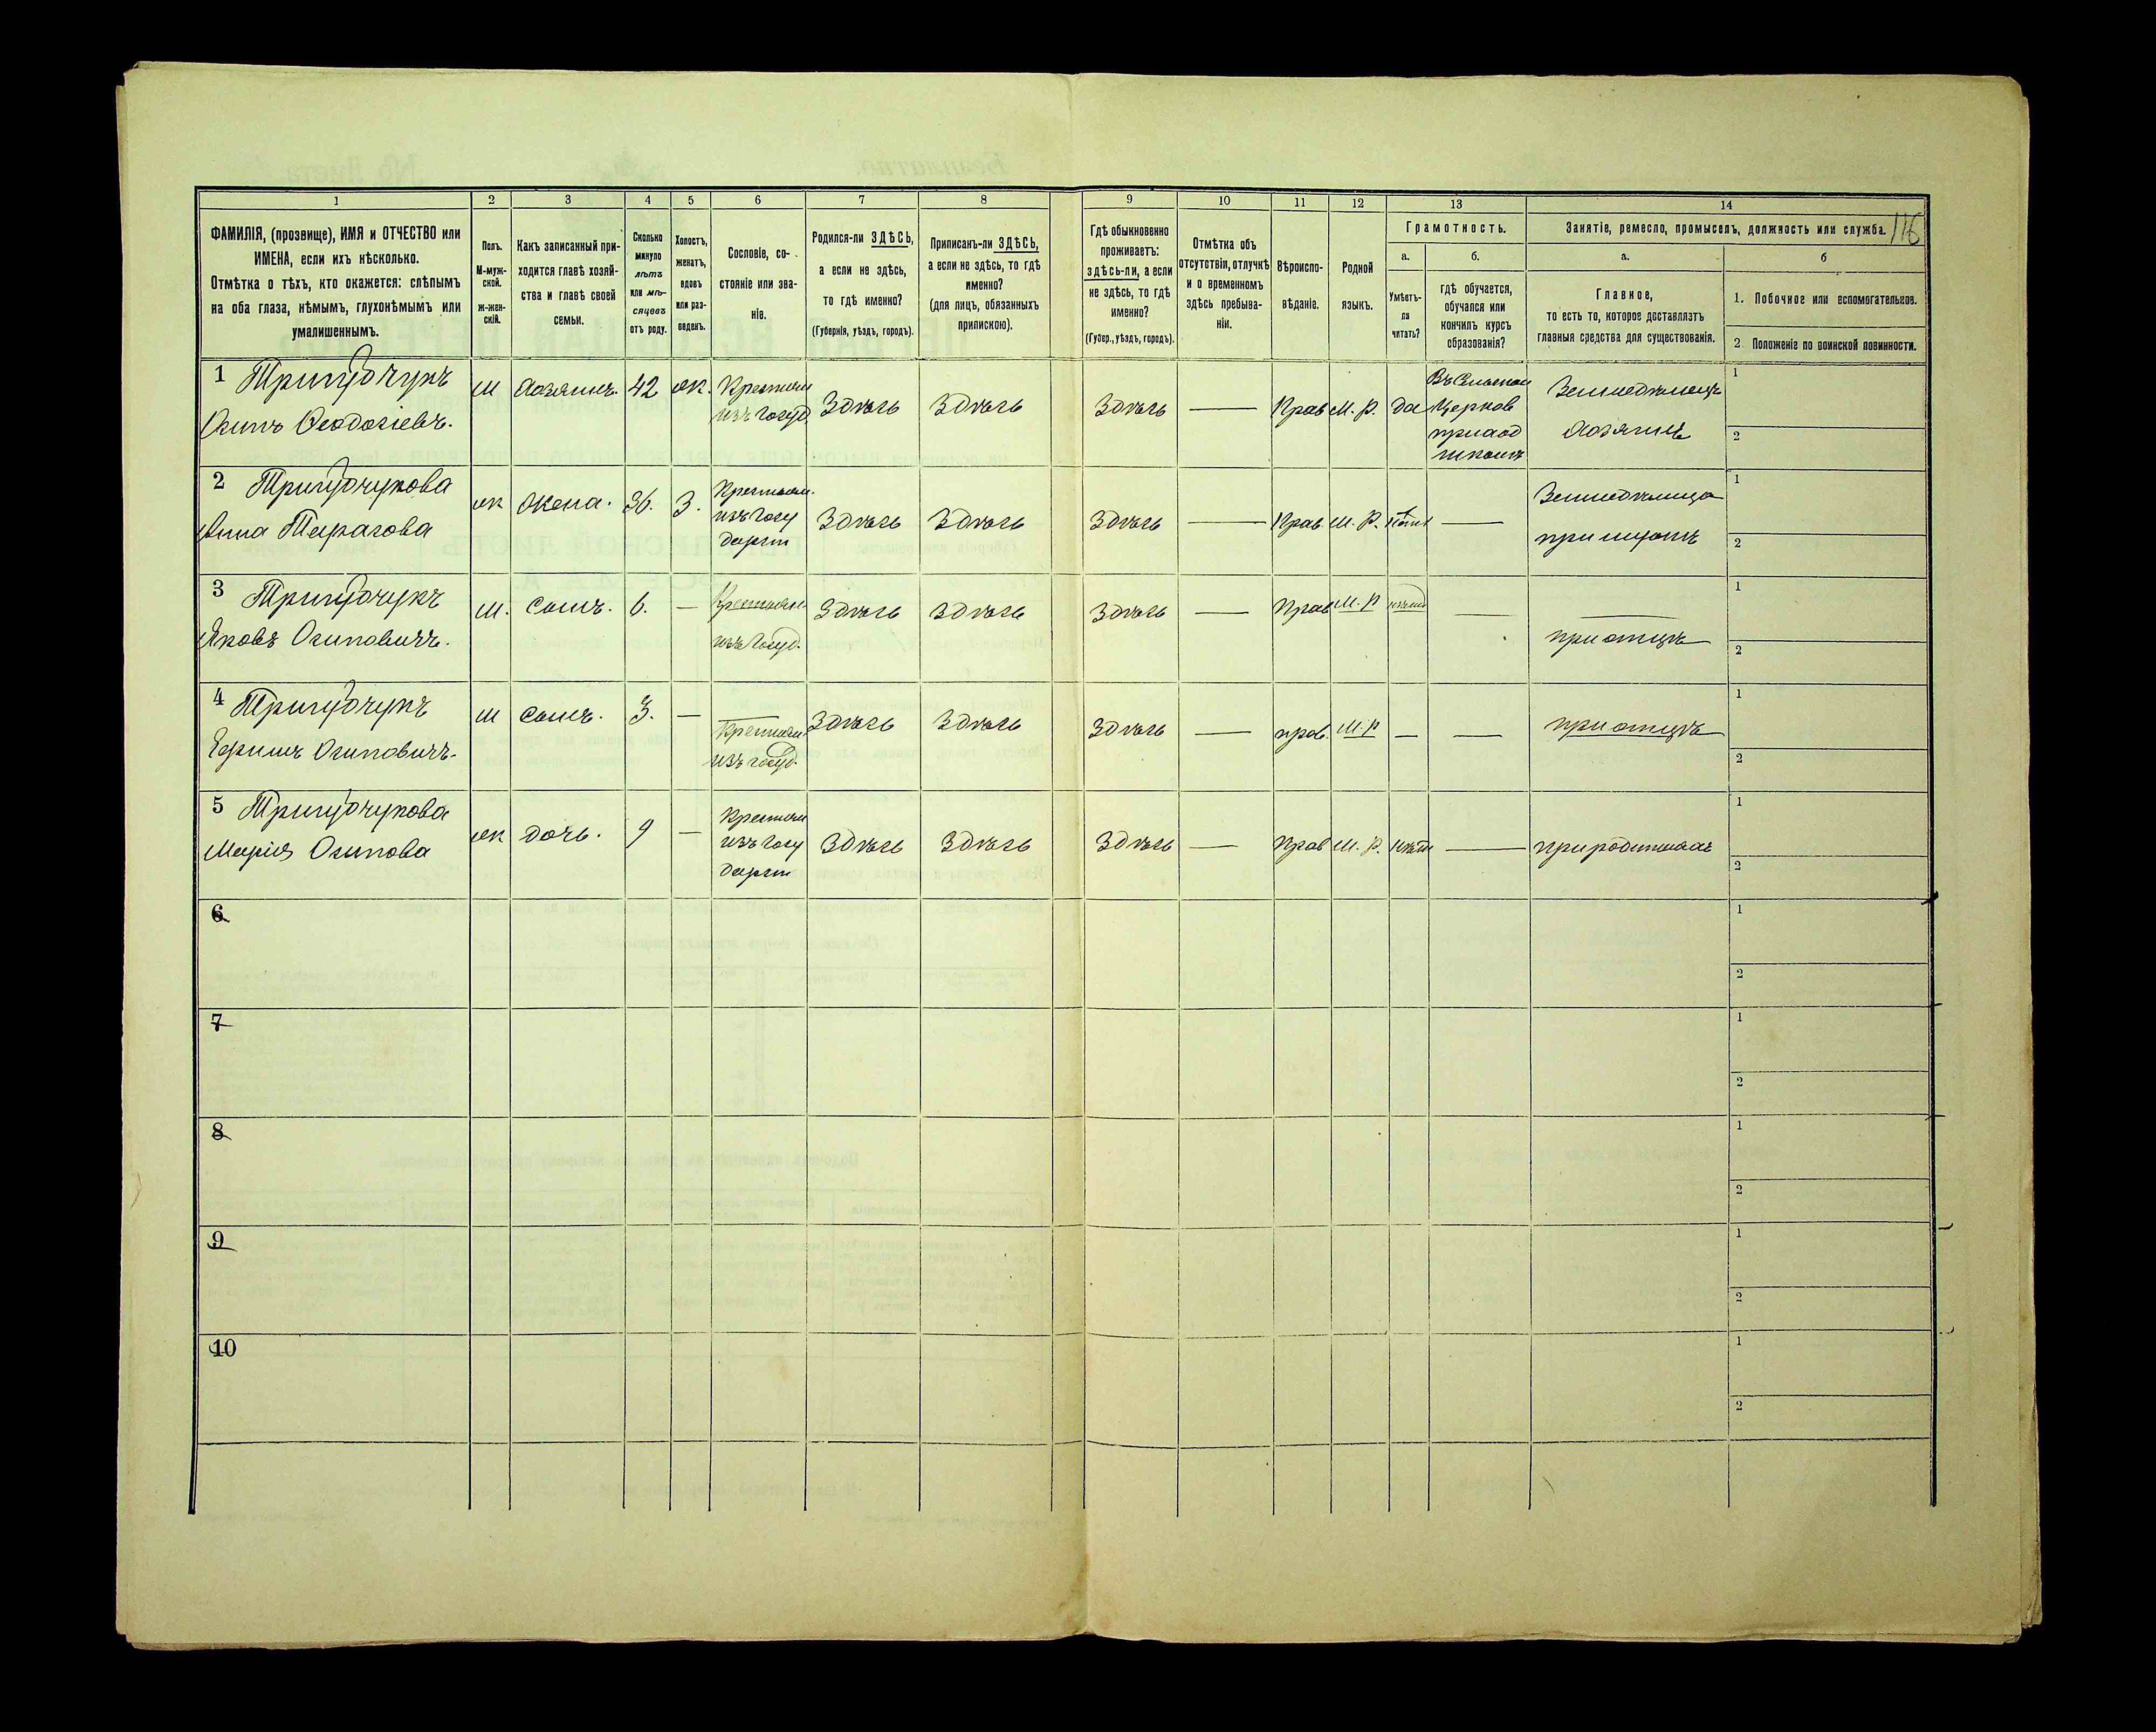 116
1 2 3 4 5 6 7 8 9 10 11 12 13 14
ФАМИЛІЯ, (прозвище), ИМЯ и ОТЧЕСТВО или
ИМЕНА, если ихъ нѣсколько.
Отмѣтка о тѣхъ, кто окажется: слѣпымъ
на оба глаза, нѣмымъ, глухонѣмымъ или
умалишеннымъ.
Полъ.
М-муж-
ской.
Ж-жен-
скій.
Какъ записанный при-
ходится главѣ хозяй-
ства и главѣ своей
семьи.
Сколько
минуло
лѣтъ
или мѣ-
сяцевъ
отъ роду.
Холостъ,
женатъ,
вдовъ
или раз-
веденъ.
Сословіе, со-
стояніе или зва-
ніе.
Родился-ли ЗДѢСЬ,
а если не здѣсь,
то гдѣ именно?
(Губернія, уѣздъ, городъ).
Приписанъ-ли ЗДѢСЬ,
а если не здѣсь, то гдѣ
именно?
(для лицъ, обязанныхъ
припискою).
Гдѣ обыкновенно
проживаетъ:
здѣсь-ли, а если
не здѣсь, то гдѣ
именно?
(Губер., уѣздъ, городъ).
Отмѣтка объ
отсутствіи, отлучкѣ
и о временномъ
здѣсь пребыва-
ніи.
Вѣроиспо-
вѣданіе.
Родной
языкъ.
Грамотность.
а.
Умѣетъ-
ли
читать?
б.
гдѣ обучается,
обучался или
кончилъ курсъ
образованія?
Занятіе, ремесло, промыселъ, должность или служба.
а.
Главное,
то есть то, которое доставляетъ
главныя средства для существованія.
б
1. Побочное или вспомогательное.
2 Положеніе по воинской повинности.
1
Осипъ Феодосіевъ.
м Хозяинъ. 42 ж.
Крестьян
изъ Госуд.
Здѣсь Здѣсь Здѣсь — Прав М. р. да
Церков
приход
школѣ
Земледѣлецъ
Хозяинъ
1
2
2
Анна Тарасова
ж жена. 36. З.
Крестьян.
изъ Госу
дарст
Здѣсь Здѣсь Здѣсь — Прав М. р. —
Земледѣлица
при мужѣ
1
2
3
Яковъ Осиповичъ.
м. сынъ. 6. —
Крестьян.
изъ Госуд.
Здѣсь Здѣсь Здѣсь — Прав М. р —
при отцѣ
1
2
4
Осиповичъ.
м сынъ. 3. —
Крестьян.
изъ госуд.
Здѣсь Здѣсь Здѣсь — прав. М. р — —
при отцѣ
1
2
5
Марія Осипова
ж дочь. 9 —
Крестьян
изъ Госу
дарст
Здѣсь Здѣсь Здѣсь — Прав М. р. нѣт —
1
2
6
1
2
7
1
2
8
1
2
9
1
2
10
1
2